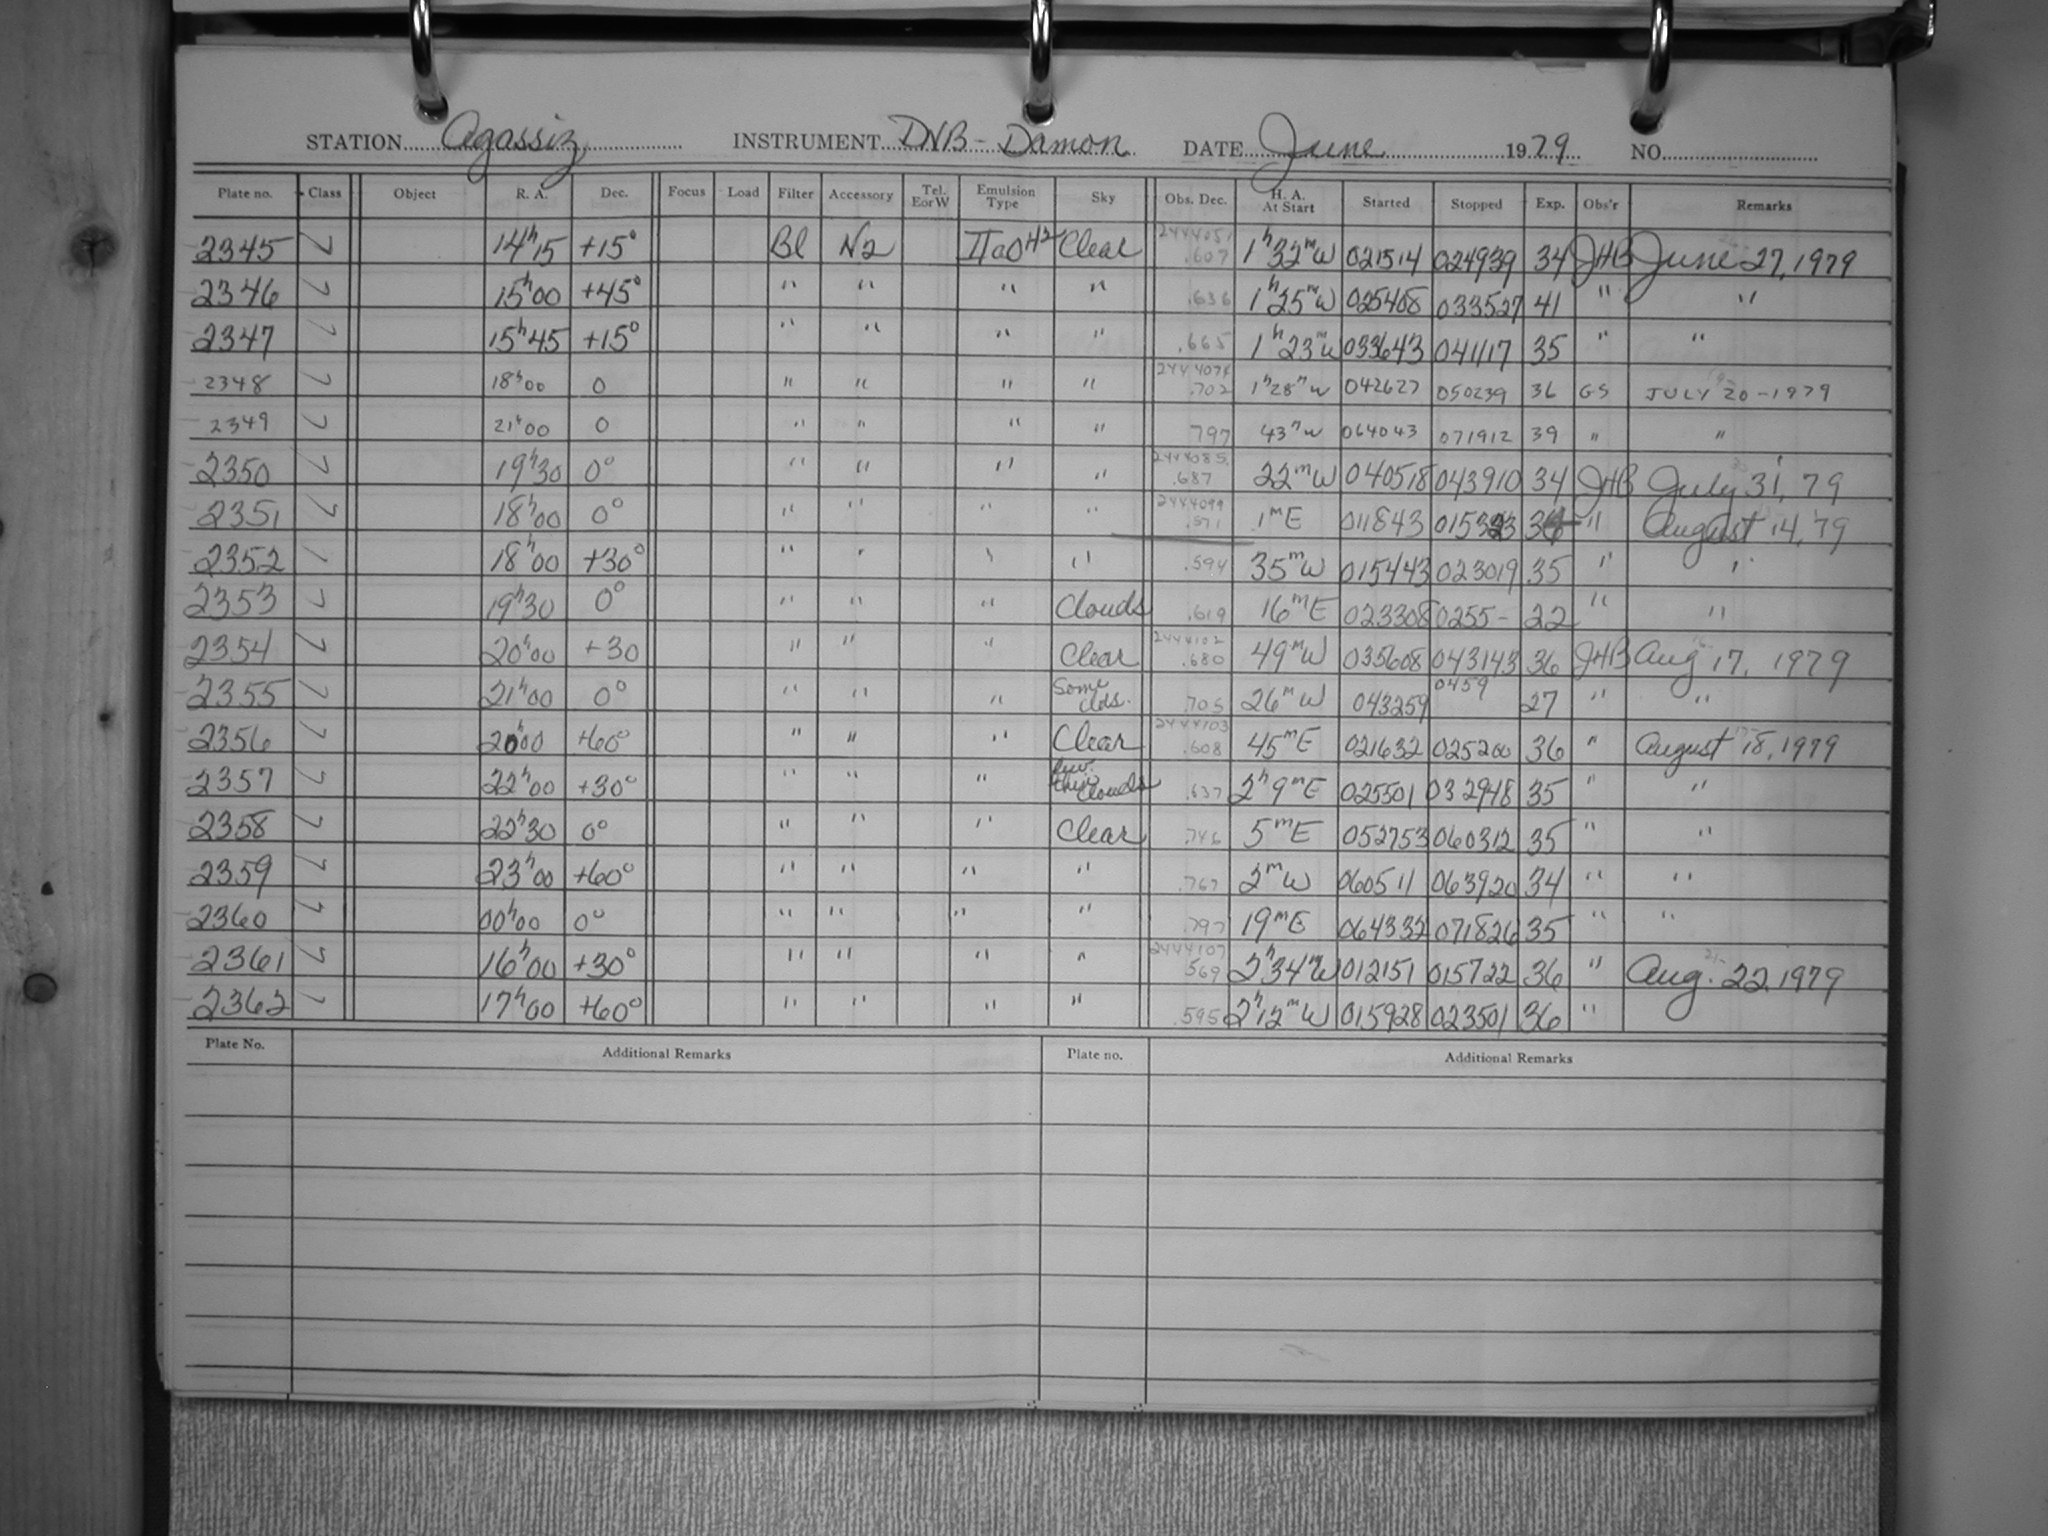 STATION Agassiz INSTRUMENT DNB - Damon DATE June 1979 NO.
Plate no. Class Object R. A. Dec. Focus Load Filter Accessory Tel. E or W Emulsion Type Sky Obs. Dec. H. A. At Start Started Stopped Exp. Obs'r Remarks
2345 7 14h15 +15° Bl N2 IIaO H2 Clear 2444051 .607 1h32mW 021514 024939 34 JHB June 27, 1979
2346 7 15h00 +45° " " " " .636 1h25mW 025408 033527 41 " "
2347 7 15h45 +15° " " " " .665 1h23mW 033643 041117 35 " "
2348 7 18h00 0 " " " " 2444074 .702 1h28mW 042627 050239 36 GS JULY 20-1979
2349 7 21h00 0 " " " " 797 43mW 064043 071912 39 " "
2350 7 19h30 0° " " " " 2444085. .687 22mW 040518 043910 34 JHB July 31, 79
2351 7 18h00 0° " " " " 2444099 .571 1mE 011843 0153 " August 14, 79
2352 7 18h00 +30° " " " " .594 35mW 015443 023019 35 " "
2353 7 19h30 0° " " " Clouds .619 16mE 023308 0255- 22 " "
2354 7 20h00 +30 " " " Clear 2444102 .680 49mW 035608 043143 36 JHB Aug 17, 1979
2355 7 21h00 0° " " " Some clds. .705 26mW 043259 0459 27 " "
2356 7 20h00 +60° " " " Clear 2444103 .608 45mE 021632 025200 36 " August 18, 1979
2357 7 22h00 +30° " " " few thin clouds .637 2h9mE 025501 032948 35 " "
2358 7 22h30 0° " " " Clear .746 5mE 052753 060312 35 " "
2359 7 23h00 +60° " " " " .767 2mW 060511 063920 34 " "
2360 7 00h00 0° " " " " .797 19mE 064332 071826 35 " "
2361 7 16h00 +30° " " " " 2444107 .569 2h34mW 012151 015722 36 " Aug. 22, 1979
2362 7 17h00 +60° " " " " .595 2h12mW 015928 023501 36 "
Plate No. Additional Remarks Plate no. Additional Remarks